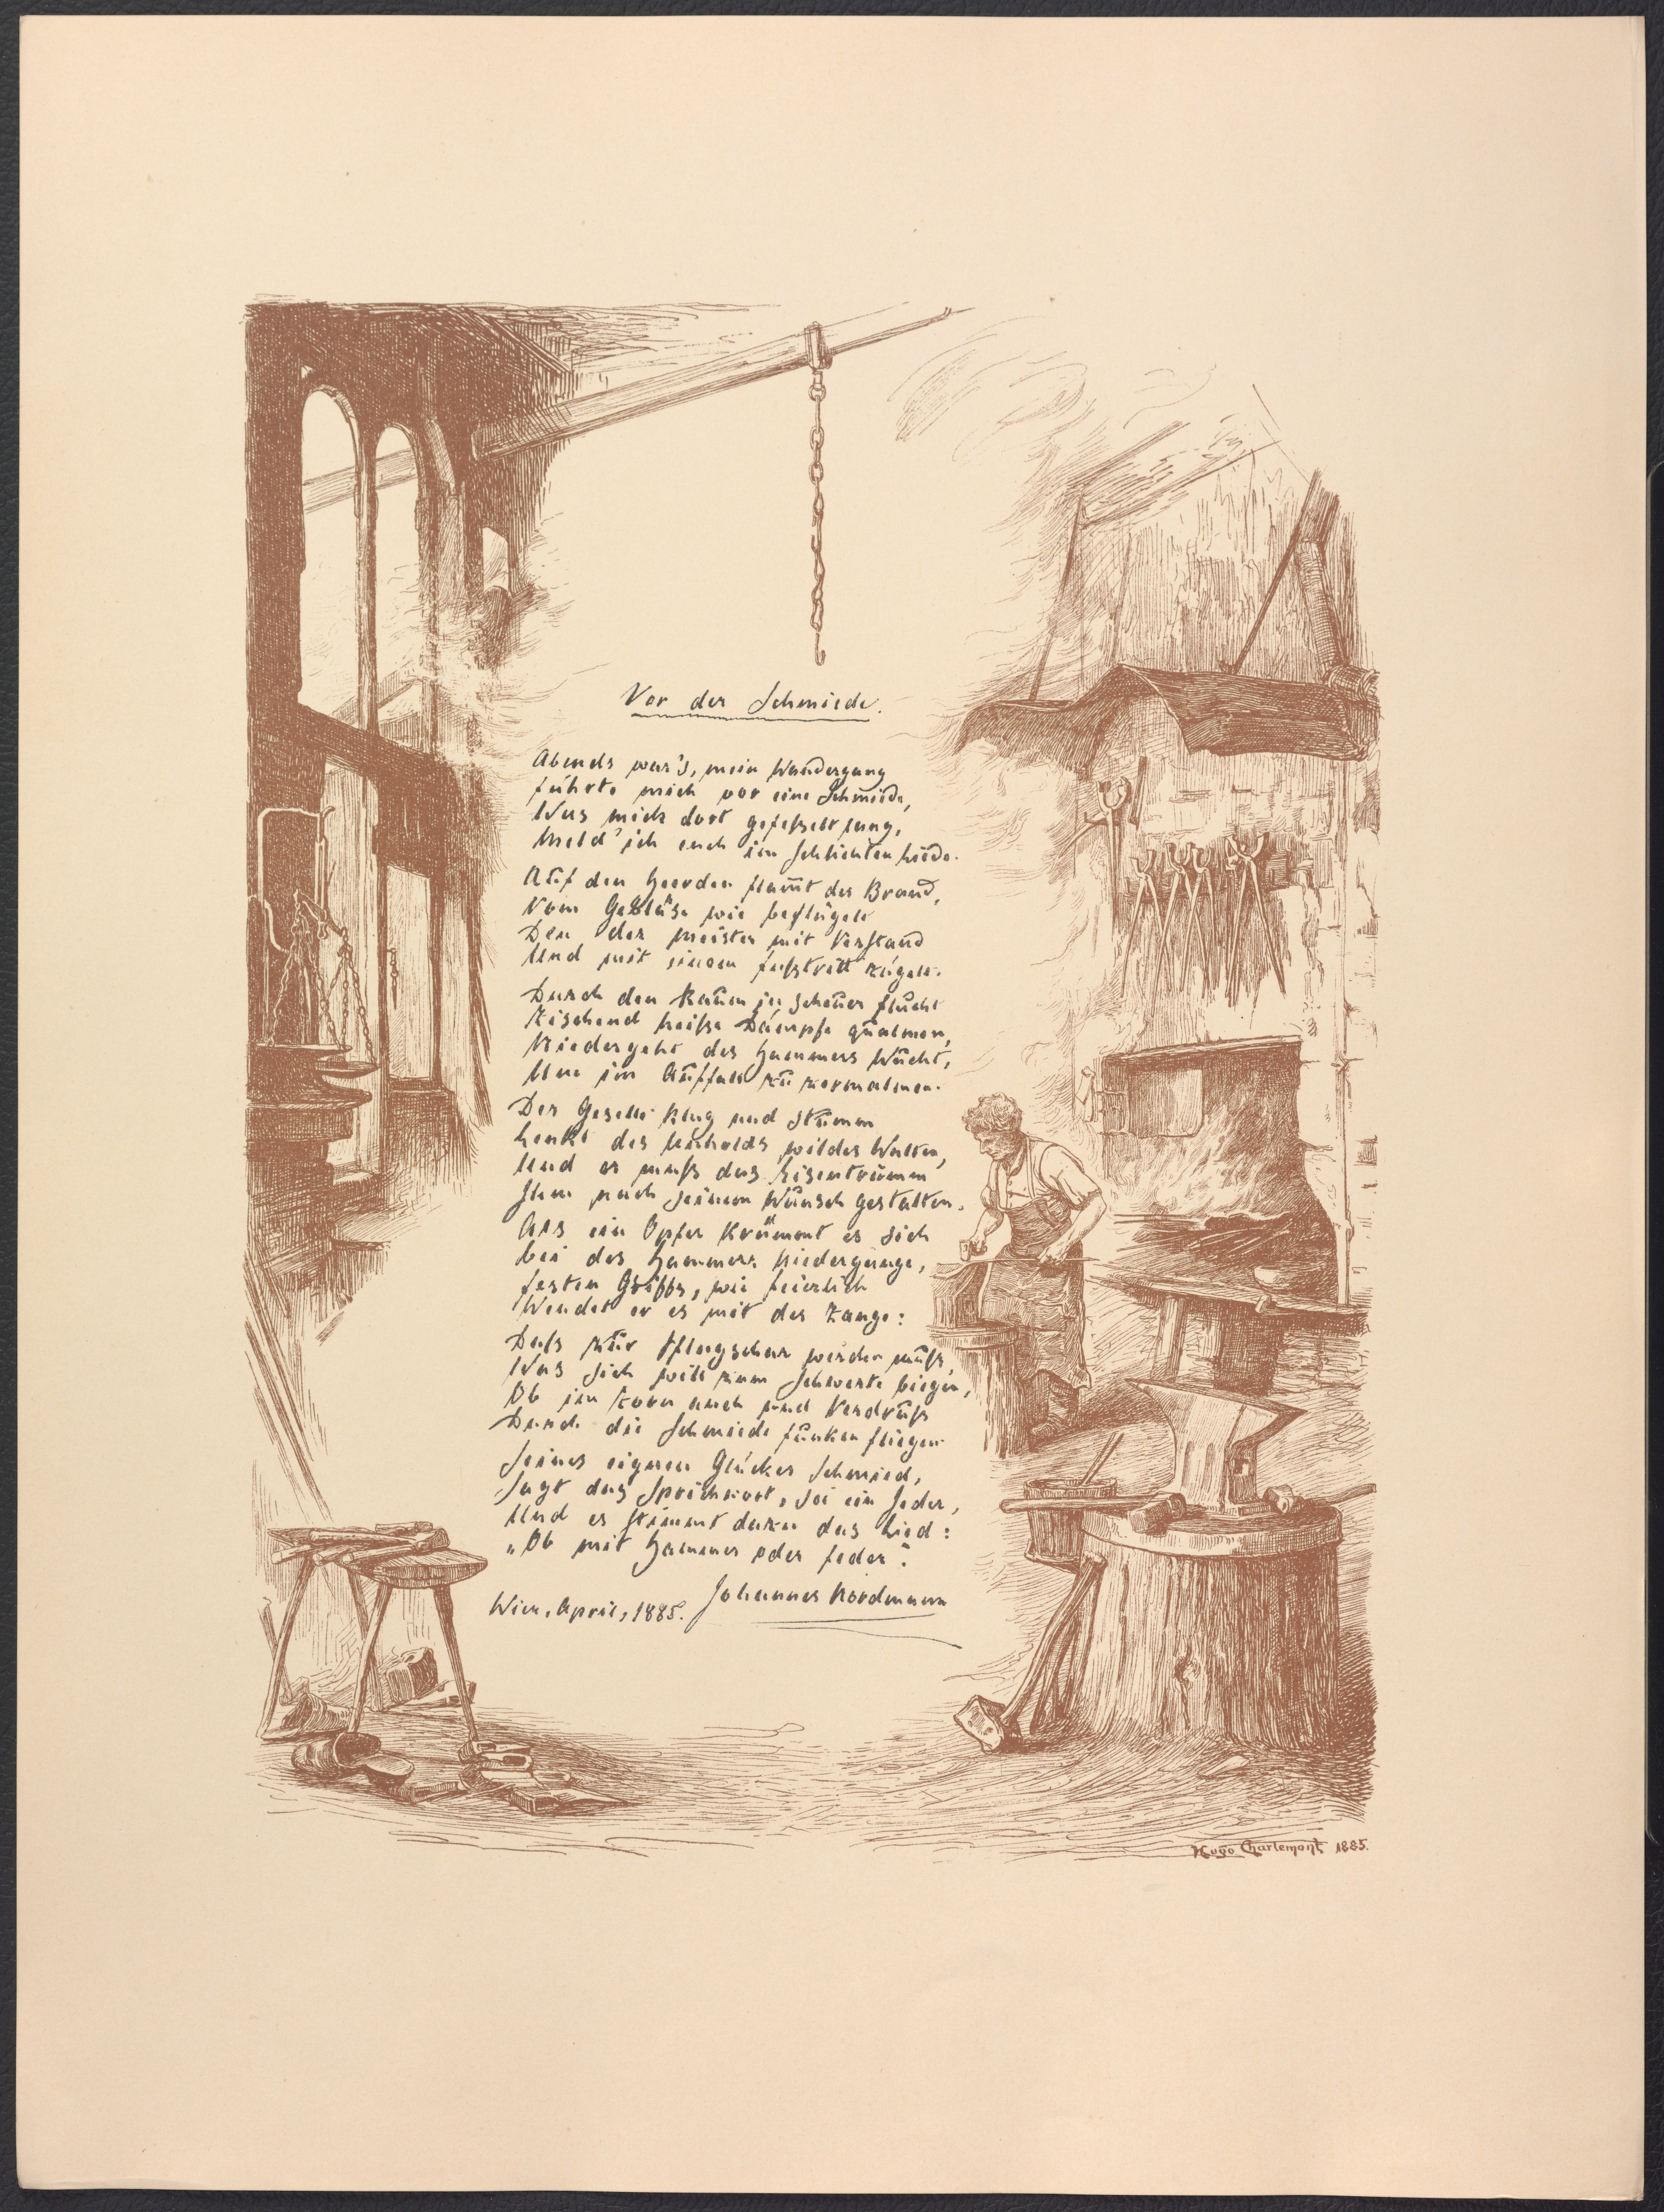 Vor der Schmiede.
Abends war's, mein Wandergang
führte mich vor eine Schmiede,
Was mich dort gefesselt lang,
Meld' ich euch im schlichten Liede.
Auf den Heerden flam̄t der Brand,
Vom Gebläse wie beflügelt
Den der Meister mit Verstand
Und mit einem Fußtritt zügelt.
Durch den Raum in scheuer Flucht
Zischend heiße Dämpfe qualmen,
Niedergeht des Hammers Wucht,
Um im Auffall zu zermalmen.
Der Geselle klug und stumm
Lenkt des Unholds wildes Walten,
Und er muß das Eisentrumm
Ihm nach seinem Wunsch gestalten.
Als ein Opfer krümmt es sich
bei des Hammers Niedergange,
festen Griffs, wie feierlich
Wendet er es mit der Zange:
Daß zur Pflugschar werden muß,
Was sich will zum Schwerte biegen,
Ob im Zorn auch und Verdruß
Durch die Schmiede Funken fliegen.
Seines eignen Glückes Schmied,
Sagt das Sprichwort, sei ein Jeder,
Und es stimmt dazu das Lied:
„Ob mit Hammer oder Feder".
Wien, April, 1885. Johannes Nordmann
Hugo Charlemont 1885.